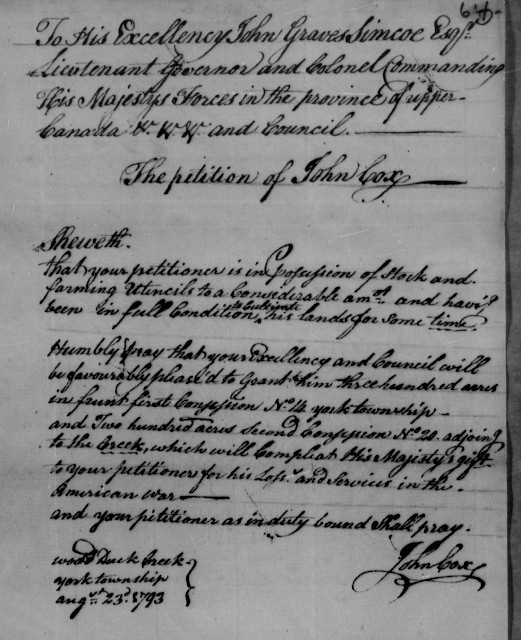 64
To His Excellency John Graves Simcoe Esqr.
Lieutenant Governor and Colonel Commanding
His Majestys Forces in the province of upper-
Canada &c. &c. &c. and Council.
The petition of John Cox
Sheweth.
that your petitioner is in Possession of Stock and
farming Utencils to a Considerable amot. and having
been in full Condition to Cultivate his lands for some time.
Humbly pray that your Excellency and Council will
be favourably pleas'd to Grant him three hundred acres
in frunt first Conssion No. 14 york township-
and Two hundred acres second Conssion No. 20. adjoing
to the Creek, which will Compleat His Majesty's gift
to your petitioner for his Loss. and Services in the
American War
and your petitioner as in duty bound Shall pray.
John Cox
wood Duck Creek
york township
augst. 23d. 1793